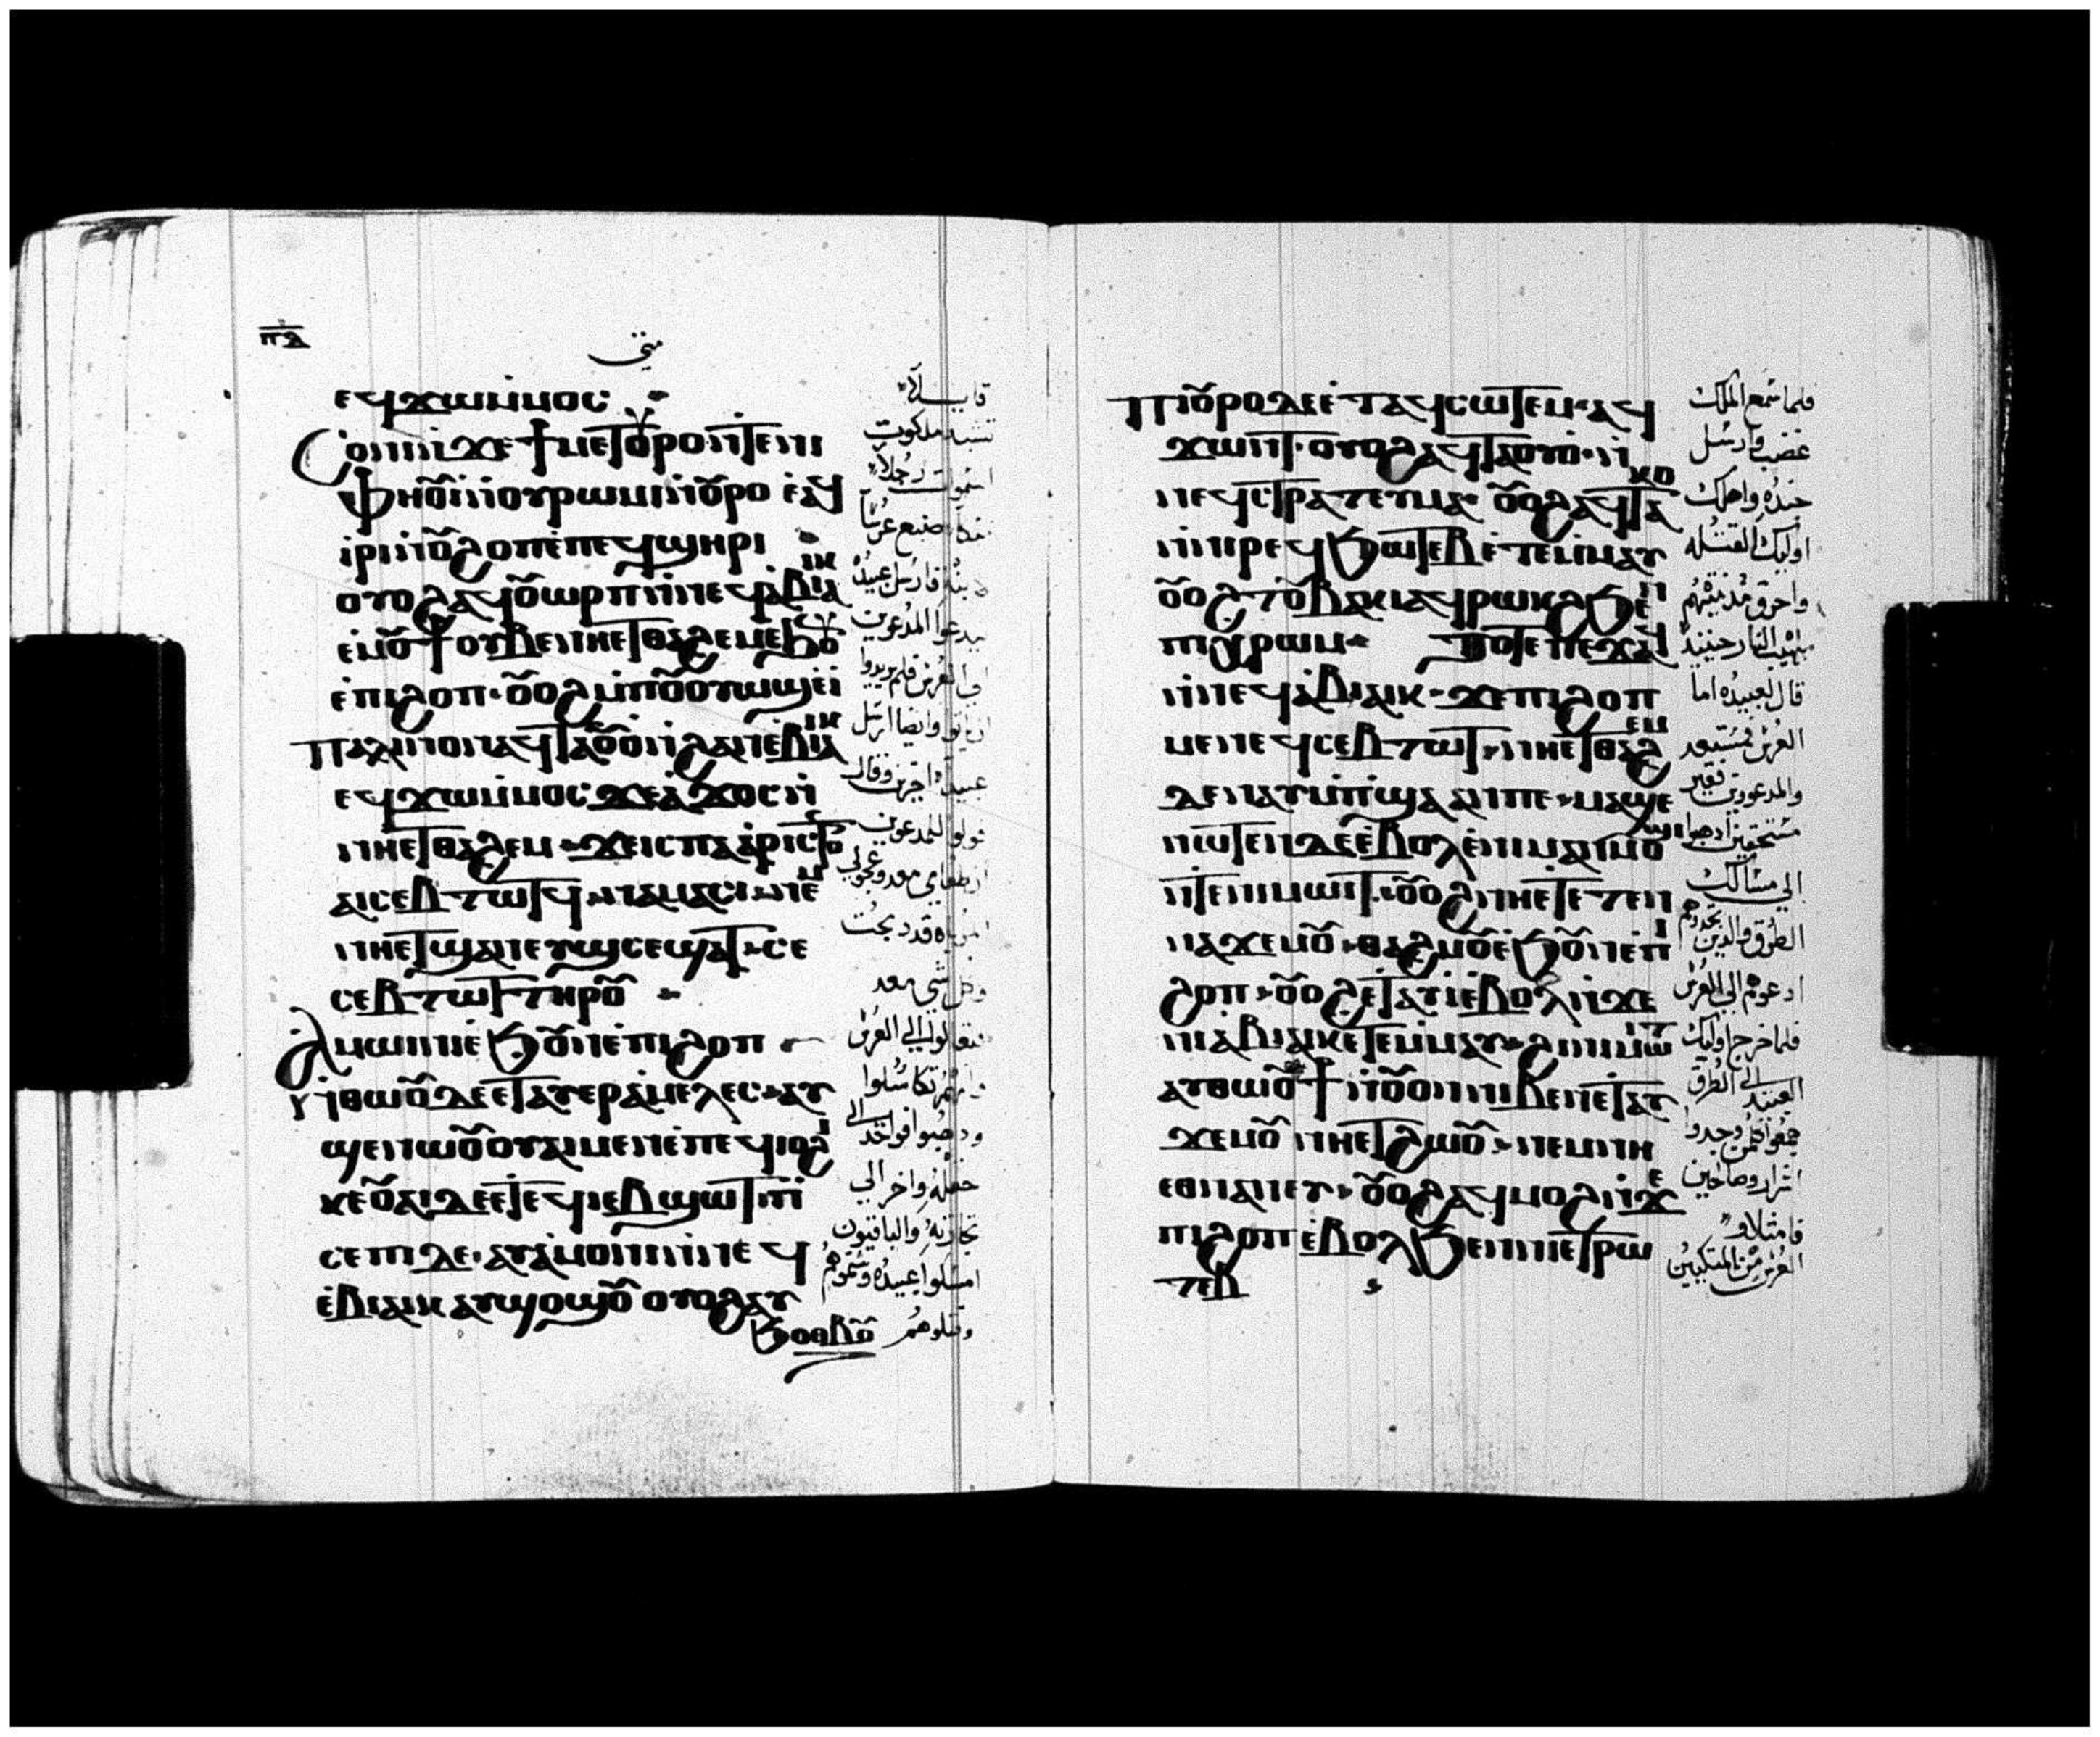 ⲡⲇ
متى
ⲉϥϫⲱⲙⲙⲟⲥ
ⲥⲟⲛⲓ ⲛϫⲉϯⲙⲉⲧⲟⲩⲣⲟ ⲛⲧⲉⲛⲓ
ⲫⲏⲟⲩⲓ ⲛⲟⲩⲣⲱⲙⲓ ⲛⲟⲩⲣⲟ ⲉⲁϥ
ⲓⲣⲓ ⲛϩⲁⲛϩⲟⲡ ⲉⲡⲉϥϣⲏⲣⲓ
ⲟⲩⲟϩ ⲁϥⲟⲩⲱⲣⲡ ⲛⲛⲉϥⲉⲃⲓⲁⲓⲕ
ⲉⲙⲟⲩϯ ⲟⲩⲃⲉ ⲛⲏⲉⲧⲑⲁϩⲉⲙ
ⲉⲡⲓϩⲟⲡ ⲟⲩⲟϩ ⲙⲡⲟⲩⲟⲩⲱϣ ⲉⲓ
ⲡⲁⲗⲓⲛ ⲟⲛ ⲁϥⲧⲁⲟⲩⲟ ⲛϩⲁⲛⲉⲃⲓⲁⲓⲕ
ⲉϥϫⲱⲙⲙⲟⲥ ϫⲉ ⲁϫⲟⲥ ⲛ
ⲛⲏⲉⲧⲑⲁϩⲉⲙ ϫⲉ ⲓⲥ ⲡⲁⲁⲣⲓⲥⲧⲟⲛ
ⲁⲓⲥⲉⲃⲧⲱⲧϥ ⲛⲁⲙⲁⲥⲓ ⲛⲉⲙ
ⲛⲏⲉⲧϣⲁⲛⲉⲩϣ ⲥⲉϣⲁⲧ ⲥⲉ
ⲥⲉⲃⲧⲱⲧ ⲧⲏⲣⲟⲩ
ⲁⲙⲱⲓⲛⲓ ⲉϧⲟⲩⲛ ⲉⲡⲓϩⲟⲡ
ⲛⲑⲱⲟⲩ ⲇⲉ ⲉⲧⲁⲩⲉⲣⲁⲙⲉⲗⲉⲥ ⲁⲩ
ϣⲉⲛⲱⲟⲩ ⲟⲩⲁⲓ ⲙⲉⲛ ⲉⲡⲉϥⲓⲟϩⲓ
ⲕⲉⲟⲩⲁⲓ ⲇⲉ ⲉⲧⲉϥⲓⲉⲃϣⲱⲧ ⲡⲓ
ⲥⲉⲡⲓ ⲇⲉ ⲁⲩⲁⲙⲟⲛⲓ ⲛⲛⲉϥ
ⲉⲃⲓⲁⲓⲕ ⲁⲩϣⲟϣⲟⲩ ⲟⲩⲟϩ ⲁⲩ
ϧⲟⲑⲃⲟⲩ
قايلا
تشبه ملكوت
السموات رجلا
ملكا صنع عرسا
لابنه فارسل عبيده
ليدعوا المدعوين
الي العرس فلم يريدوا
ان ياتوا وايضا ارسل
عبيدا اخرين وقال
قولوا للمدعوين
قد ذبحت
وكل شي معد
تعالوا الي العرس
فتكاسلوا
وذهبوا فواحد الي
حقله واخر الي
تجارته والباقيون
امسكوا عبيده وشتموهم
وقتلوهم
ⲡⲓⲟⲩⲣⲟ ⲇⲉ ⲉⲧⲁϥⲥⲱⲧⲉⲙ ⲁϥ
ϫⲱⲛⲧ ⲟⲩⲟϩ ⲁϥⲧⲁⲟⲩⲟ ⲛ
ⲛⲉϥⲥⲧⲣⲁⲧⲉⲩⲙⲁ ⲟⲩⲟϩ ⲁϥⲧⲁⲕⲟ
ⲛⲛⲓⲣⲉϥϧⲱⲧⲉⲃ ⲉⲧⲉⲙⲙⲁⲩ
ⲟⲩⲟϩ ⲧⲟⲩⲃⲁⲕⲓ ⲁϥⲣⲱⲕϩ ϧⲉⲛ
ⲡⲓⲭⲣⲱⲙ ⲧⲟⲧⲉ ⲡⲉϫⲁϥ
ⲛⲛⲉϥⲉⲃⲓⲁⲓⲕ ϫⲉ ⲡⲓϩⲟⲡ
ⲙⲉⲛ ⲉϥⲥⲉⲃⲧⲱⲧ ⲛⲏⲉⲧⲑⲁϩⲉⲙ
ⲇⲉ ⲛⲁⲩⲙⲡϣⲁ ⲁⲛ ⲡⲉ ⲙⲁϣⲉ
ⲛⲱⲧⲉⲛ ⲇⲉ ⲉⲃⲟⲗ ⲉⲛⲓⲙⲁⲛⲙⲟϣⲓ
ⲛⲧⲉⲛⲓⲙⲱⲓⲧ ⲟⲩⲟϩ ⲛⲏⲉⲧⲉⲧⲉⲛ
ⲛⲁϫⲉⲙⲟⲩ ⲑⲁϩⲙⲟⲩ ⲉϧⲟⲩⲛ ⲉⲡⲓ
ϩⲟⲡ ⲟⲩⲟϩ ⲉⲧⲁⲩⲓ ⲉⲃⲟⲗ ⲛϫⲉ
ⲛⲓⲉⲃⲓⲁⲓⲕ ⲉⲧⲉⲙⲙⲁⲩ ϩⲓ ⲛⲓⲙⲱⲓⲧ
ⲁⲩⲑⲱⲟⲩϯ ⲛⲟⲩⲟⲛ ⲛⲓⲃⲉⲛ ⲉⲧⲁⲩ
ϫⲉⲙⲟⲩ ⲛⲏⲉⲧϩⲱⲟⲩ ⲛⲉⲙ ⲛⲏ
ⲉⲑⲛⲁⲛⲉⲩ ⲟⲩⲟϩ ⲁϥⲙⲟϩ ⲛϫⲉ
ⲡⲓϩⲟⲡ ⲉⲃⲟⲗ ϧⲉⲛ ⲛⲏⲉⲧⲣⲱ
ⲧⲉⲃ
فلما سمع الملك
غضب وارسل
جنده واهلك
اوليك القتله
واحرق مدينتهم
بلهيب النار حينيذ
قال لعبيده اما
العرس فمستعد
والمدعوون فغير
مستحقين اذهبوا
الي مسالك
الطرق والذين تجدوهم
ادعوهم الي العرس
فلما خرج اوليك
العبيد الي الطرق
جمعوا كلمن وجدوا
اشرار وصالحين
فامتلاء
العرس من المتكيين